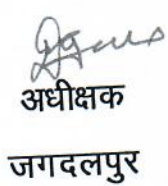 अधीक्षक
जगदलपुर